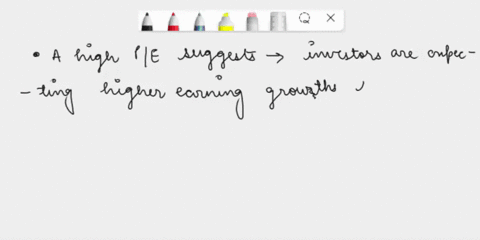 • A high P/E suggests → investors are expec-
-ting higher earning growths